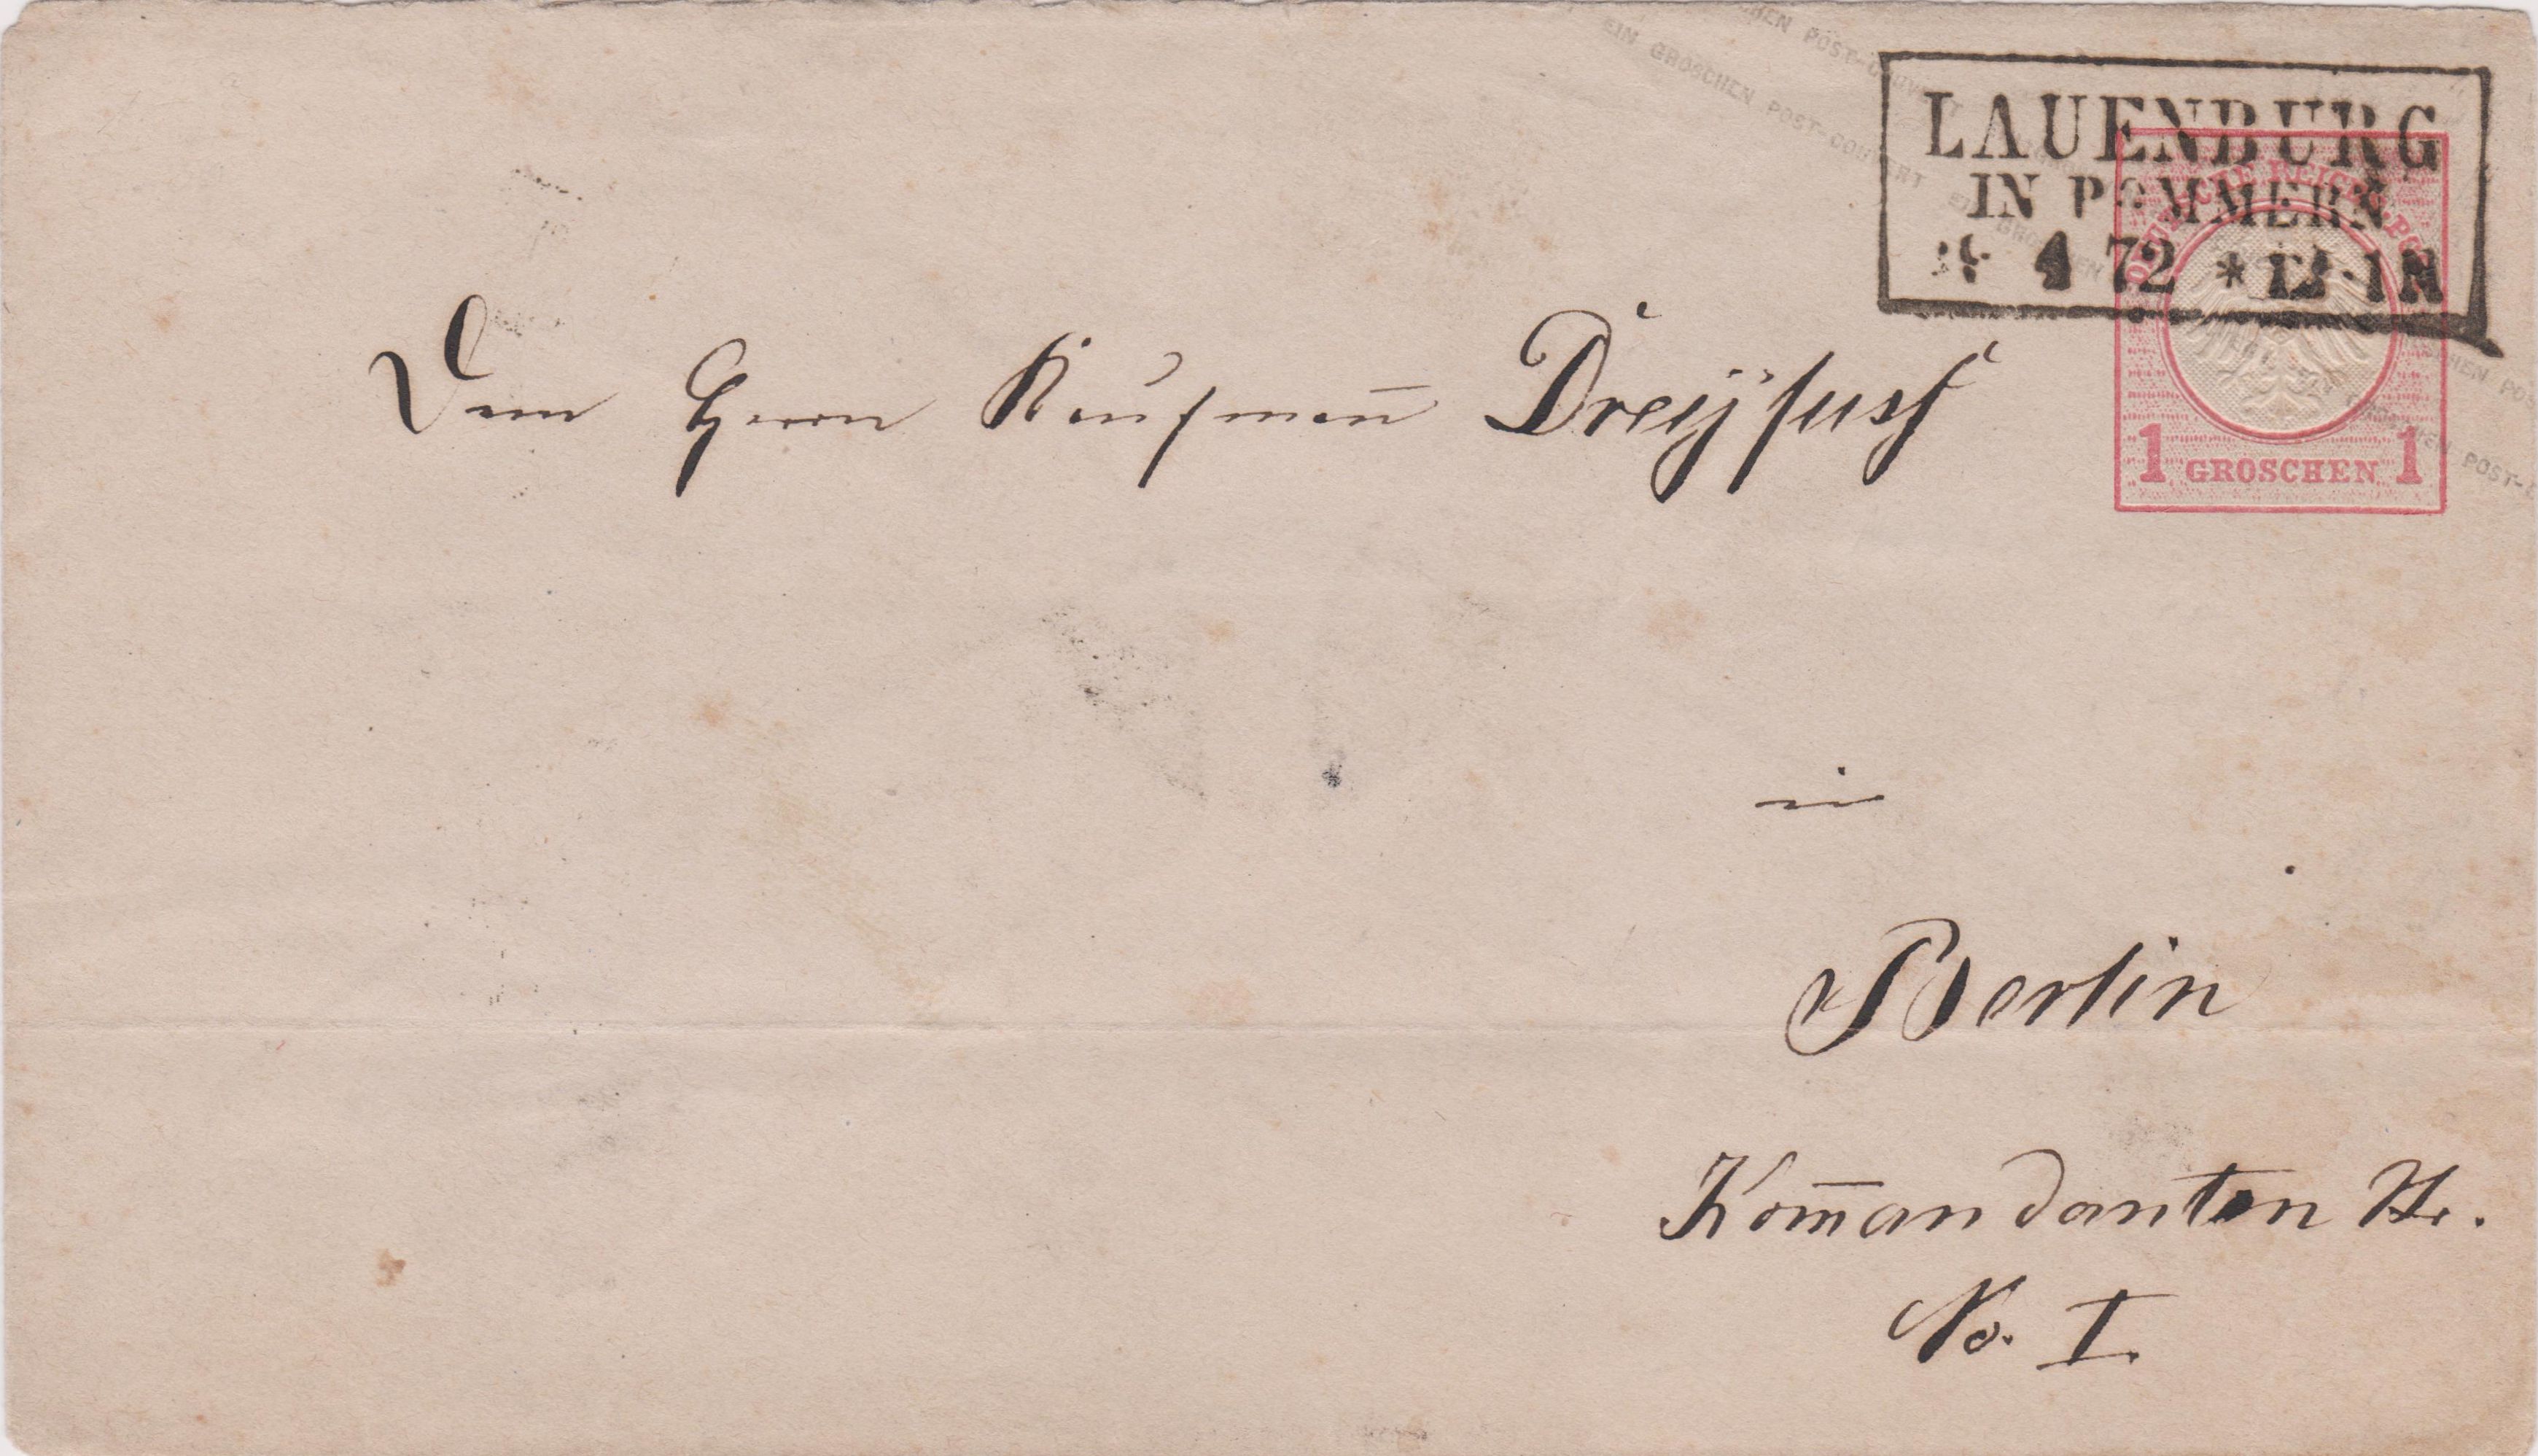 EIN GROSCHEN POST-COUVERT
LAUENBURG
IN POMMERN
4 72 * 12-1 N
DEUTSCHE REICHS-POST
1 GROSCHEN 1
Dem Herrn Kaufmañ Dreÿfuss
in
Berlin
Kom̄andanten Str.
No. I.